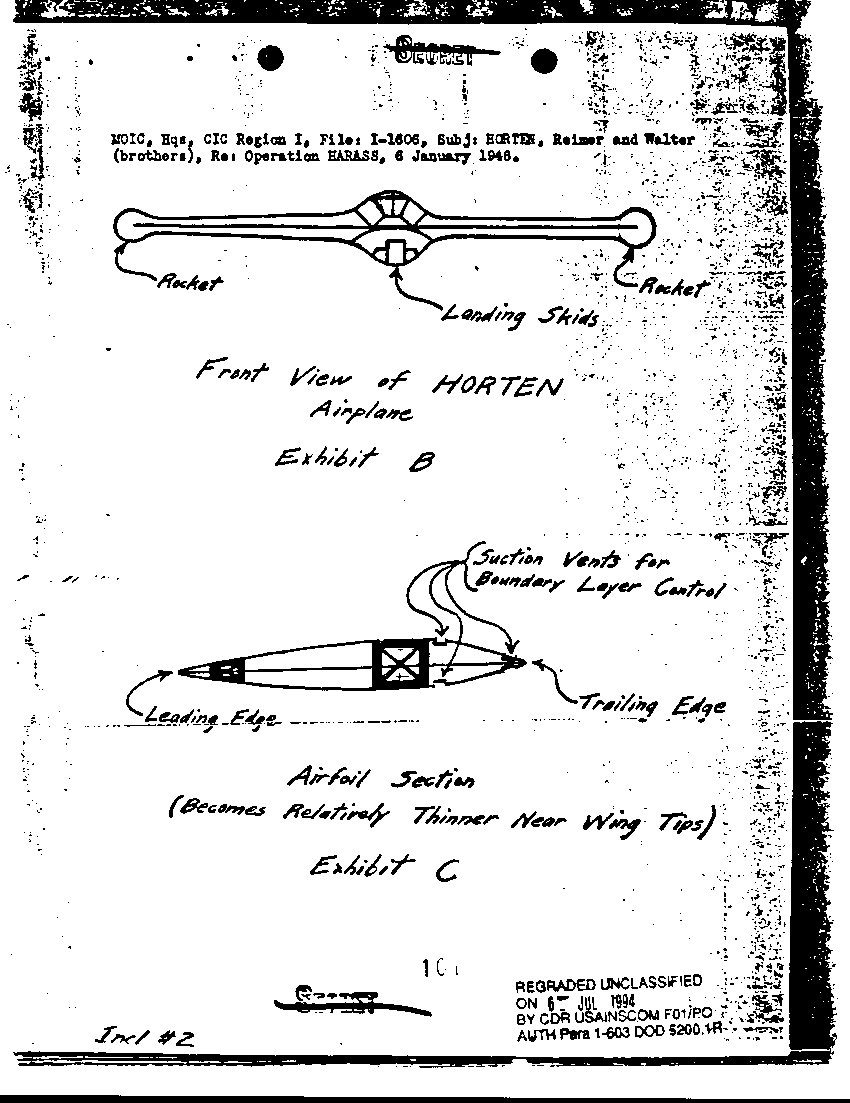 SECRET
MOIC, Hqs, CIC Region I, File: I-1606, Subj: HORTEN, Reimer and Walter
(brothers), Re: Operation HARASS, 6 January 1946.
Rocket
Rocket
Landing Skids
Front View of HORTEN
Airplane
Exhibit B
Suction Vents for
Boundary Layer Control
Leading Edge
Trailing Edge
Airfoil Section
(Becomes Relatively Thinner Near Wing Tips)
Exhibit C
SECRET
REGRADED UNCLASSIFIED
ON 6 JUL 1994
BY CDR USAINSCOM F01/PO
AUTH Para 1-603 DOD 5200.1R
Incl #2